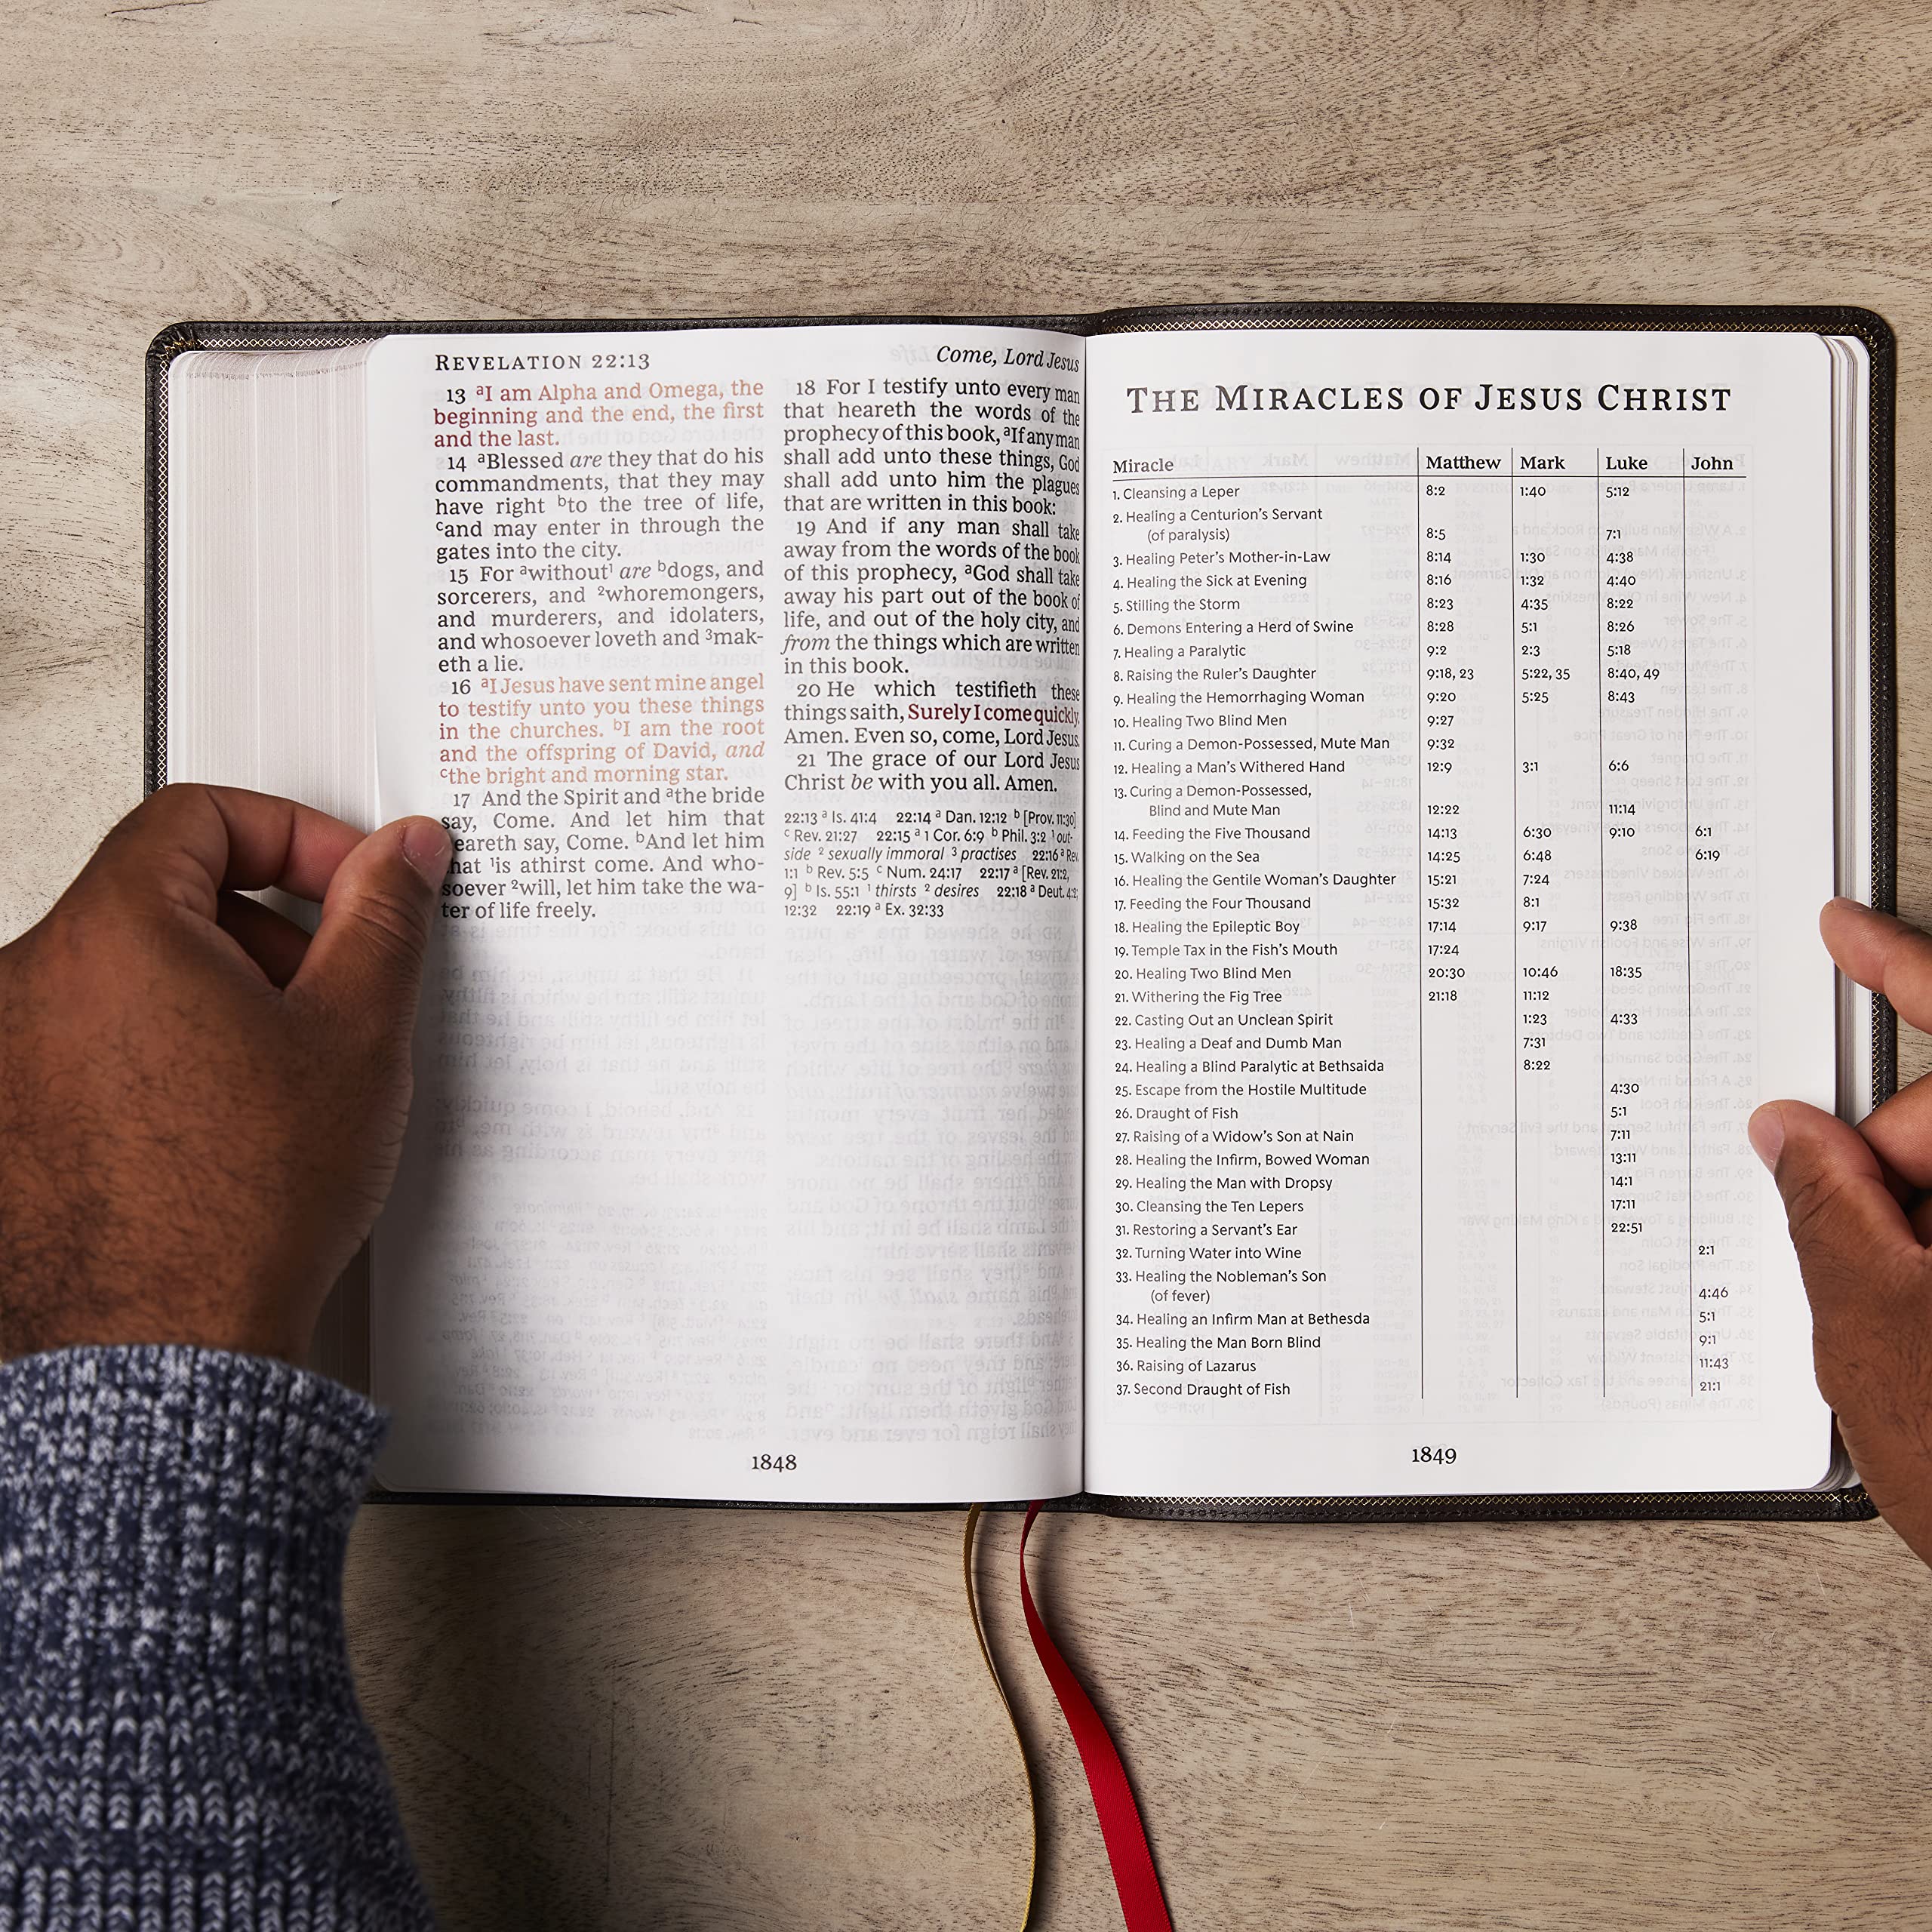 REVELATION 22:13
13 ᵃI am Alpha and Omega, the
beginning and the end, the first
and the last.
14 ᵃBlessed are they that do his
commandments, that they may
have right ᵇto the tree of life,
ᶜand may enter in through the
gates into the city.
15 For ᵃwithout¹ are ᵇdogs, and
sorcerers, and ²whoremongers,
and murderers, and idolaters,
and whosoever loveth and ³mak-
eth a lie.
16 ᵃI Jesus have sent mine angel
to testify unto you these things
in the churches. ᵇI am the root
and the offspring of David, and
ᶜthe bright and morning star.
17 And the Spirit and ᵃthe bride
say, Come. And let him that
eareth say, Come. ᵇAnd let him
hat ¹is athirst come. And who-
soever ²will, let him take the wa-
ter of life freely.
Come, Lord Jesus
18 For I testify unto every man
that heareth the words of the
prophecy of this book, ᵃIf any man
shall add unto these things, God
shall add unto him the plagues
that are written in this book:
19 And if any man shall take
away from the words of the book
of this prophecy, ᵃGod shall take
away his part out of the book of
life, and out of the holy city, and
from the things which are written
in this book.
20 He which testifieth these
things saith, Surely I come quickly.
Amen. Even so, come, Lord Jesus.
21 The grace of our Lord Jesus
Christ be with you all. Amen.
22:13 ᵃ Is. 41:4 22:14 ᵃ Dan. 12:12 ᵇ [Prov. 11:30]
ᶜ Rev. 21:27 22:15 ᵃ 1 Cor. 6:9 ᵇ Phil. 3:2 ¹ out-
side ² sexually immoral ³ practises 22:16 ᵃ Rev.
1:1 ᵇ Rev. 5:5 ᶜ Num. 24:17 22:17 ᵃ [Rev. 21:2,
9] ᵇ Is. 55:1 ¹ thirsts ² desires 22:18 ᵃ Deut. 4:2;
12:32 22:19 ᵃ Ex. 32:33
1848
THE MIRACLES OF JESUS CHRIST
Miracle Matthew Mark Luke John
1. Cleansing a Leper 8:2 1:40 5:12
2. Healing a Centurion's Servant
(of paralysis) 8:5 7:1
3. Healing Peter's Mother-in-Law 8:14 1:30 4:38
4. Healing the Sick at Evening 8:16 1:32 4:40
5. Stilling the Storm 8:23 4:35 8:22
6. Demons Entering a Herd of Swine 8:28 5:1 8:26
7. Healing a Paralytic 9:2 2:3 5:18
8. Raising the Ruler's Daughter 9:18, 23 5:22, 35 8:40, 49
9. Healing the Hemorrhaging Woman 9:20 5:25 8:43
10. Healing Two Blind Men 9:27
11. Curing a Demon-Possessed, Mute Man 9:32
12. Healing a Man's Withered Hand 12:9 3:1 6:6
13. Curing a Demon-Possessed,
Blind and Mute Man 12:22 11:14
14. Feeding the Five Thousand 14:13 6:30 9:10 6:1
15. Walking on the Sea 14:25 6:48 6:19
16. Healing the Gentile Woman's Daughter 15:21 7:24
17. Feeding the Four Thousand 15:32 8:1
18. Healing the Epileptic Boy 17:14 9:17 9:38
19. Temple Tax in the Fish's Mouth 17:24
20. Healing Two Blind Men 20:30 10:46 18:35
21. Withering the Fig Tree 21:18 11:12
22. Casting Out an Unclean Spirit 1:23 4:33
23. Healing a Deaf and Dumb Man 7:31
24. Healing a Blind Paralytic at Bethsaida 8:22
25. Escape from the Hostile Multitude 4:30
26. Draught of Fish 5:1
27. Raising of a Widow's Son at Nain 7:11
28. Healing the Infirm, Bowed Woman 13:11
29. Healing the Man with Dropsy 14:1
30. Cleansing the Ten Lepers 17:11
31. Restoring a Servant's Ear 22:51
32. Turning Water into Wine 2:1
33. Healing the Nobleman's Son
(of fever) 4:46
34. Healing an Infirm Man at Bethesda 5:1
35. Healing the Man Born Blind 9:1
36. Raising of Lazarus 11:43
37. Second Draught of Fish 21:1
1849